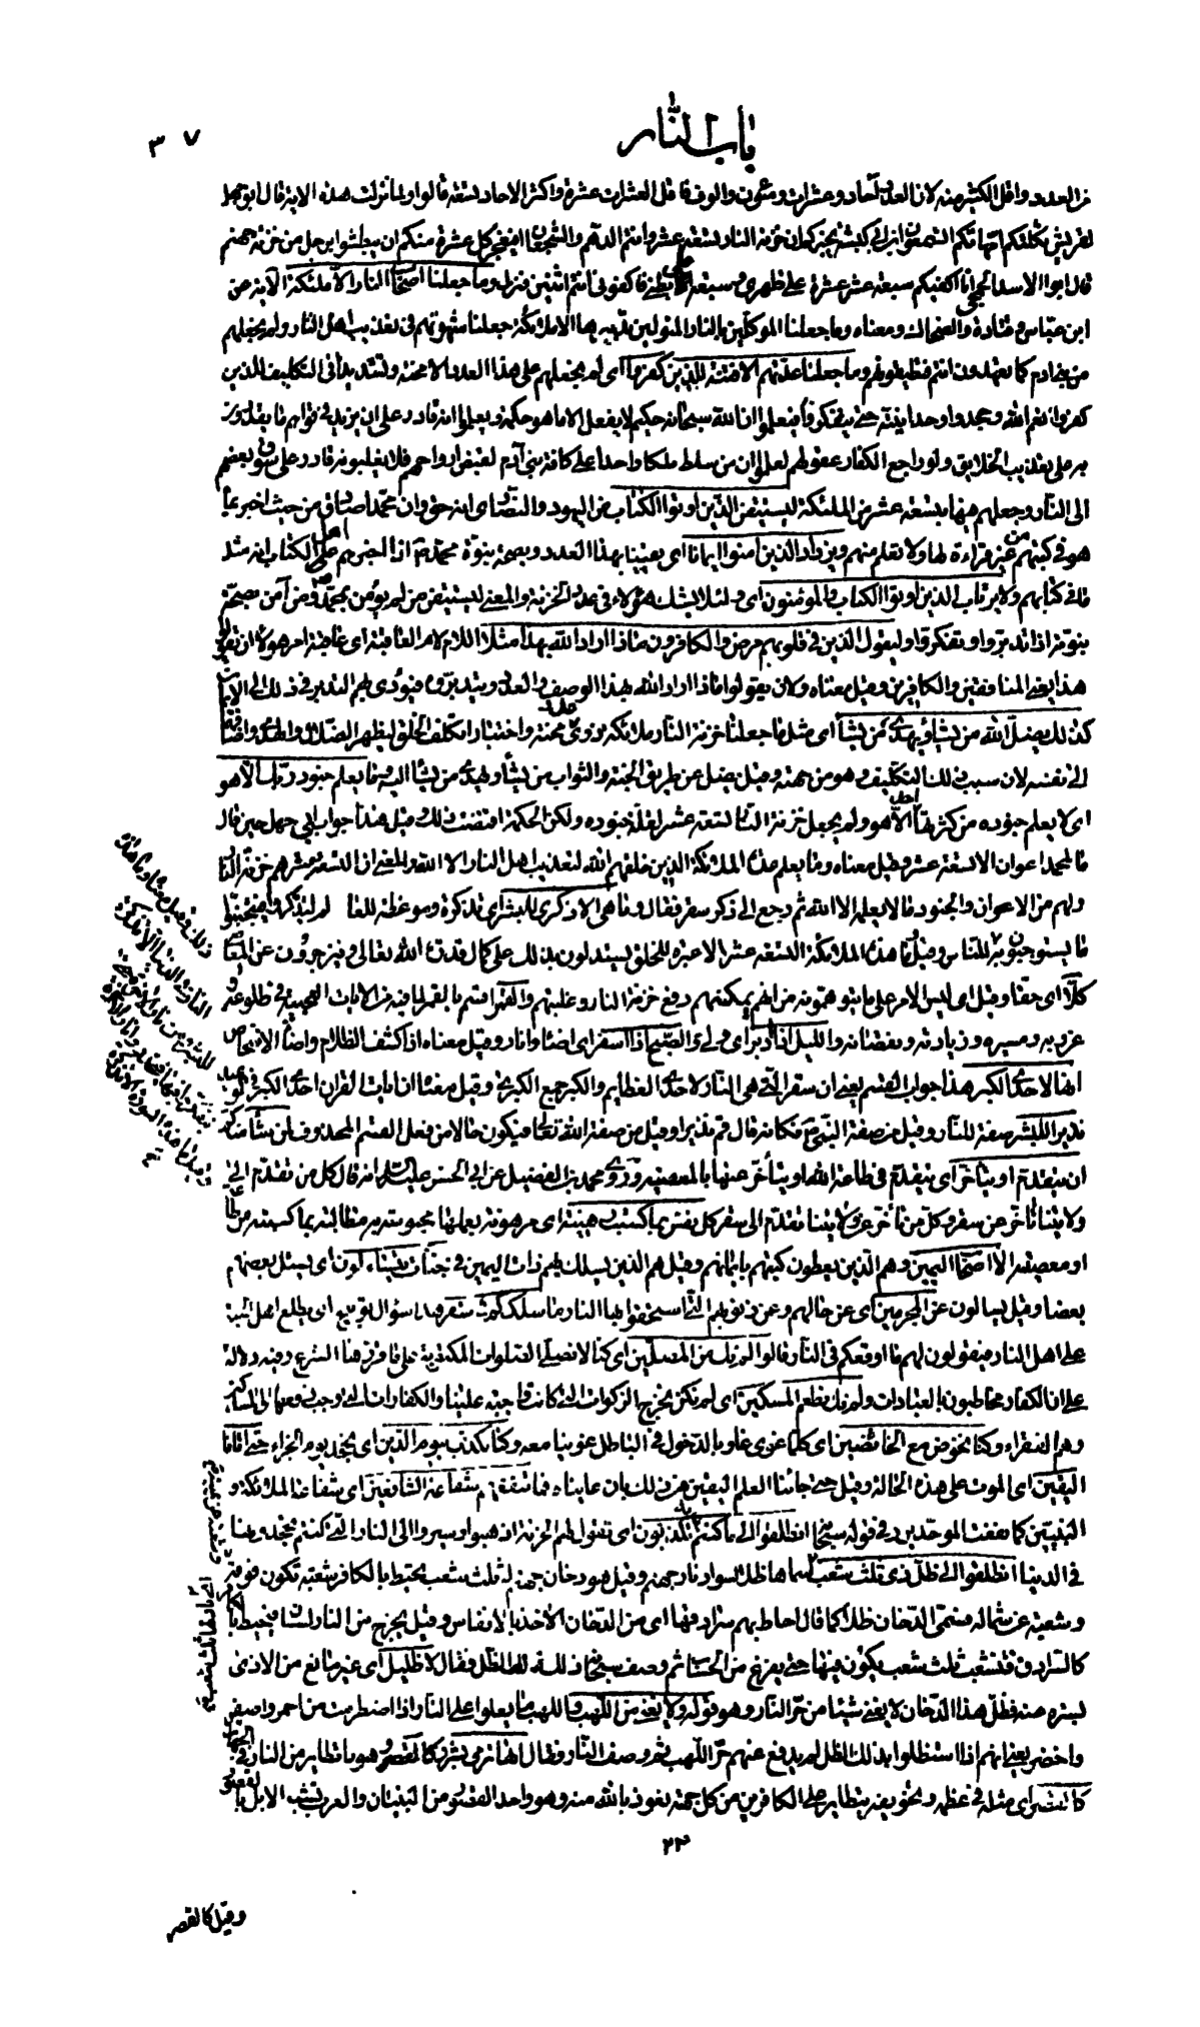 باب النار
٣٧
من العدد واقل الكثير منه لان العدد آحاد وعشرات ومئون والوف فاقل العشرات عشرة واكثر الاحاد تسعة قالوا ولما نزلت هذه الاية قال ابو جهل
لقريش ثكلتكم امهاتكم اتسمعون ابن ابي كبشة يخبركم ان خزنة النار تسعة عشر وانتم الدهم والشجعان افيعجز كل عشرة منكم ان يبطشوا برجل من خزنة جهنم
قال ابو الاسد الجمحي انا اكفيكم سبعة عشر عشرة على ظهري وسبعة على بطني فاكفوني انتم اثنين فنزل وما جعلنا اصحاب النار الا ملئكة الآية عن
ابن عباس وقتادة والضحاك ومعناه وما جعلنا الموكلين بالنار المتولين تدبيرها الا ملائكة جعلنا شهوتهم في تعذيب اهل النار ولم نجعلهم
من بني آدم كما تعهدون انتم فتطيقونهم وما جعلنا عدتهم الا فتنة للذين كفروا اي لم نجعلهم على هذا العدد الا محنة وتشديدا في التكليف للذين
كفروا نعم الله وجحدوا وحدانيته حتى يتفكروا فيعلموا ان الله سبحانه حكيم لا يفعل الا ما هو حكمة ويعلموا انه قادر على ان يزيد في قواهم ما يقدرون
به على تعذيب الخلايق ولو راجع الكفار عقولهم لعلموا ان من سلط ملكا واحدا على كافة بني آدم لقبض ارواحهم فلا يغلبونه قادر على سوق بعضهم
الى النار وجعلهم فيها بتسعة عشر من الملئكة ليستيقن الذين اوتوا الكتاب من اليهود والنصارى انه حق وان محمدا صادق من حيث اخبر بما
هو في كتبهم من غير قراءة لها ولا تعلم منهم ويزداد الذين امنوا ايمانا اي يقينا بهذا العدد وبصحة نبوة محمد اذا اخبرهم اهل الكتاب انه مثل
ما في كتابهم ولا يرتاب الذين اوتوا الكتاب والمؤمنون اي ولئلا يشك هؤلاء في عدد الخزنة والمعنى ليستيقن من لم يؤمن بمحمد ومن آمن بصحة
نبوته اذا تدبروا وتفكروا وليقول الذين في قلوبهم مرض والكافرون ماذا اراد الله بهذا مثلا اللام لام العاقبة اي عاقبة امر هؤلاء ان يقولوا
هذا يعني المنافقين والكافرين وقيل معناه ولان يقولوا ماذا اراد الله بهذا الوصف والعدد ويتدبروه فيؤدي بهم التدبر في ذلك الى الايمان
كذلك يضل الله من يشاء ويهدي من يشاء اي مثل ما جعلنا خزنة النار ملائكة ذوي عدد محنة واختبارا نكلف الخلق ليظهر الضلال والهدى واضافهما
الى نفسه لان سبب ذلك التكليف وهو من جهته وقيل يضل عن طريق الجنة والثواب من يشاء ويهدي من يشاء اليه وما يعلم جنود ربك الا هو
اي لا يعلم جنوده من كثرتها احد الا هو ولم يجعل خزنة النار تسعة عشر لقلة جنوده ولكن الحكمة اقتضت ذلك وقيل هذا جواب ابي جهل حين قال
ما لمحمد اعوان الا تسعة عشر وقيل معناه وما يعلم عدة الملائكة الذين خلقهم الله لتعذيب اهل النار الا الله والمعنى ان التسعة عشر هم خزنة النار
ولهم من الاعوان والجنود ما لا يعلمه الا الله ثم رجع الى ذكر سقر فقال وما هي الا ذكرى للبشر اي تذكرة وموعظة للعالم ليتذكروا فيتجنبوا
ما يستوجبون به ذلك وقيل وما هذه الملائكة التسعة عشر الا عبرة للخلق يستدلون بذلك على كمال قدرة الله تعالى وينزجرون عن المعاصي
كلا اي حقا وقيل اي ليس الامر على ما يتوهمونه من انهم يمكنهم دفع خزنة النار وغلبتهم والقمر اقسم بالقمر لما فيه من الايات العجيبة في طلوعه و
غروبه ومسيره وزيادته ونقصانه والليل اذا ادبر اي ولى والصبح اذا اسفر اي اضاء وانار وقيل معناه اذا كشف الظلام واضاء الاشخاص
انها لاحدى الكبر هذا جواب القسم يعني ان سقر التي هي النار لاحدى العظايم والكبر جمع الكبرى وقيل معناه ان آيات القرآن احدى الكبر في الوعيد
نذيرا للبشر صفة للنار وقيل من صفة النبي فكانه قال قم نذيرا وقيل من صفة الله تعالى فيكون حالا من فعل القسم المحذوف لمن شاء منكم
ان يتقدم او يتاخر اي يتقدم في طاعة الله او يتأخر عنها بالمعصية وروى محمد بن الفضيل عن ابي الحسن عليه السلام انه قال كل من تقدم الى
ولايتنا تأخر عن سقر وكل من تأخر عن ولايتنا تقدم الى سقر كل نفس بما كسبت رهينة اي مرهونة بعملها محبوسة به مطالبة بما كسبته من طاعة
او معصية الا اصحاب اليمين وهم الذين يعطون كتبهم بايمانهم وقيل هم الذين يسلك بهم ذات اليمين في جنات يتساءلون اي يسئل بعضهم
بعضا وقيل يسالون عن المجرمين اي عن حالهم وعن ذنوبهم التي استحقوا بها النار ما سلككم في سقر هذا سؤال توبيخ اي يطلع اهل الجنة
على اهل النار فيقولون لهم ما اوقعكم في النار قالوا لم نك من المصلين اي كنا لا نصلي الصلوات المكتوبة على ما قررها الشرع وفيه دلالة
على ان الكفار مخاطبون بالعبادات ولم نك نطعم المسكين اي لم نكن نخرج الزكوات التي كانت واجبة علينا والكفارات التي وجب دفعها الى المساكين
وهم الفقراء وكنا نخوض مع الخائضين اي كلما غوى غاو بالدخول في الباطل غوينا معه وكنا نكذب بيوم الدين اي نجحد يوم الجزاء حتى اتانا
اليقين اي الموت على هذه الحالة وقيل حتى جائنا العلم اليقين من ذلك بان عايناه فما تنفعهم شفاعة الشافعين اي شفاعة الملائكة و
النبيين كما نفعت الموحدين وفي قوله سبحانه انطلقوا الى ما كنتم به تكذبون اي تقول لهم الخزنة اذهبوا وسيروا الى النار التي كنتم تجحدونها
في الدنيا انطلقوا الى ظل ذي ثلث شعب سماها ظلا لسواد نار جهنم وقيل هو دخان جهنم له ثلث شعب تحيط بالكافر شعبة تكون فوقه
وشعبة عن شماله فسمى الدخان ظلا كما قال احاط بهم سرادقها اي من الدخان الآخذ بالانفاس وقيل يخرج من النار لسان فيحيط بالكافر
كالسرادق فتشعب ثلث شعب يكون فيها حتى يفرغ من الحساب ثم وصف سبحانه ذلك الظل فقال لا ظليل اي غير مانع من الاذى
بستره عنه فظل هذا الدخان لا يغني شيئا من حر النار وهو قوله ولا يغني من اللهب واللهب ما يعلوا على النار اذا اضطربت من احمر واصفر
واخضر يعني انهم اذا استظلوا بذلك الظل لم يدفع عنهم حر اللهب ثم وصف النار فقال انها ترمي بشرر كالقصر وهو ما تطاير من النار في الجهات
كالقصر اي مثله في عظمه وتخويفه يتطاير على الكافرين من كل جهة نعوذ بالله منه وهو واحد القصور من البنيان والعرب تشبه الابل بالقصور
٢٣
وقيل كالقصر